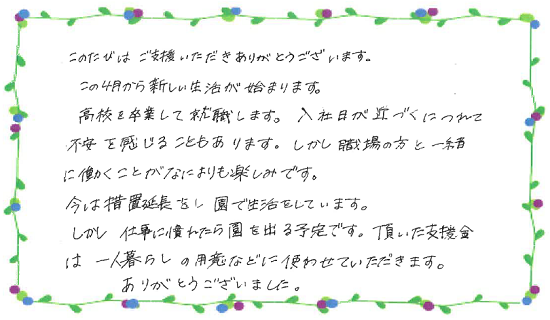 このたびは ご支援いただきありがとうございます。
この4月から新しい生活が始まります。
高校を卒業して就職します。 入社日が近づくにつれて
不安を感じることもあります。しかし職場の方と一緒
に働くことがなによりも楽しみです。
今は措置延長をし園で生活をしています。
しかし 仕事に慣れたら園を出る予定です。頂いた支援金
は 一人暮らしの用意などに使わせていただきます。
ありがとうございました。